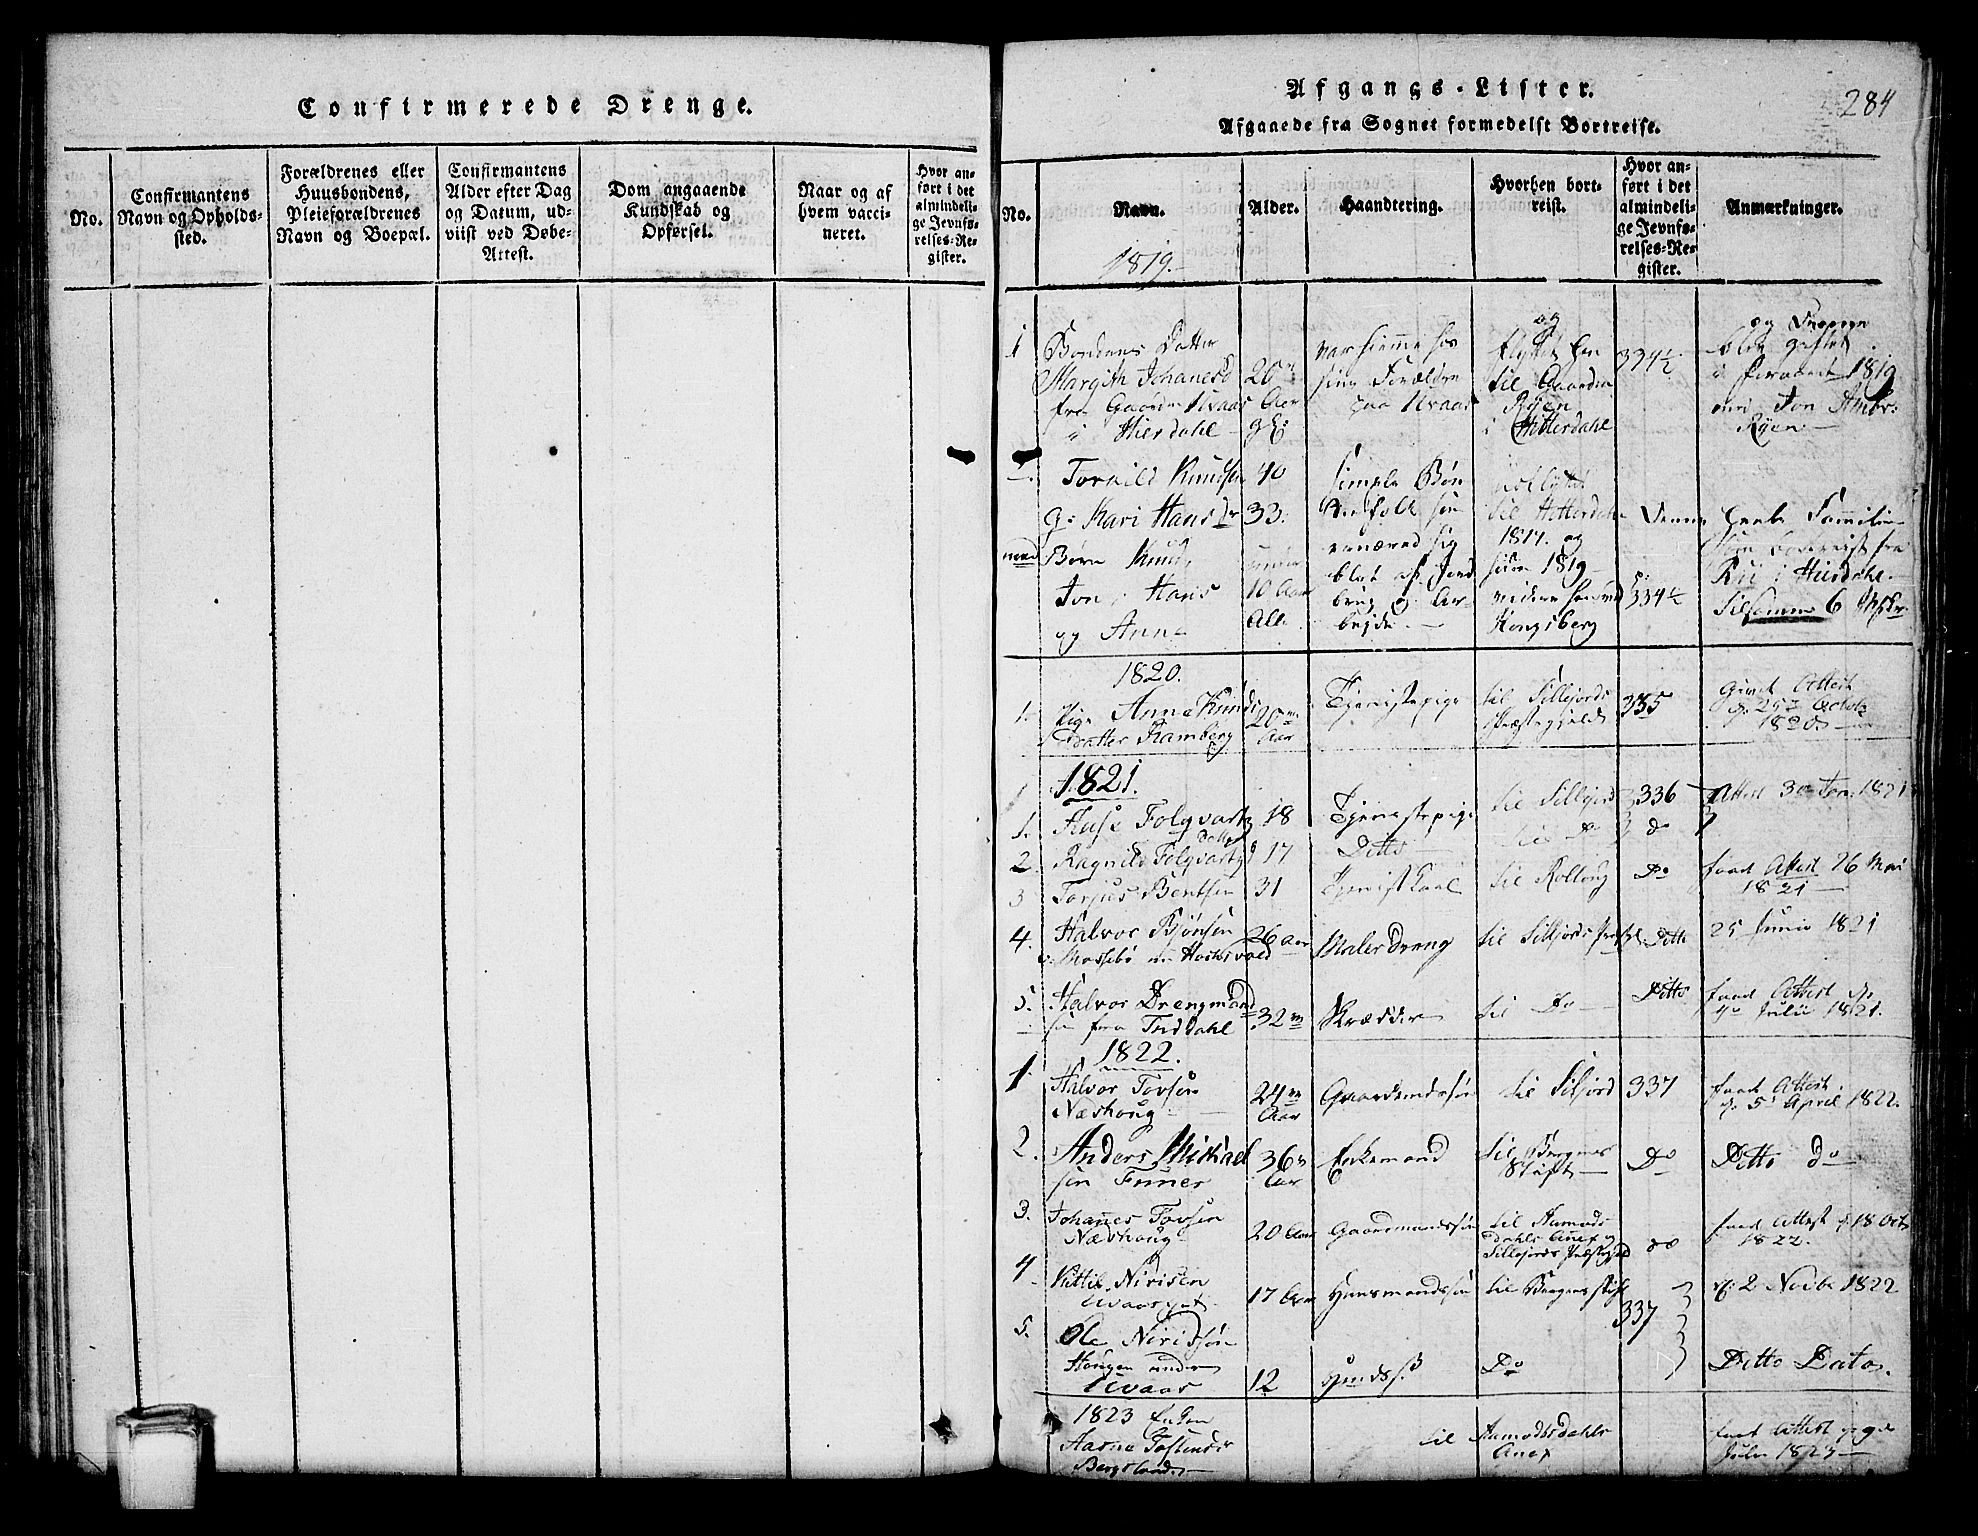 Confirmerede Drenge.
No.
Confirmantens
Navn og Opholds-
sted.
Forældrenes eller
Huusbondens,
Pleieforældrenes
Navn og Boepæl.
Confirmantens
Alder efter Dag
og Datum, ud-
viist ved Døbe-
Attest.
Dom angaaende
Kundskab og
Opførsel.
Naar og af
hvem vacci-
neret.
Hvor an-
ført i det
almindeli-
ge Jevnfø-
relses-Re-
gister.
284
Afgangs-Lister.
Afgaaede fra Sognet formedelst Bortreise.
No.
Navn.
Alder.
Haandtering.
Hvorhen bort-
reist.
Hvor an-
ført i det
almindeli-
ge Jevnfø-
relses-Re-
gister.
Anmærkninger.
1819.
1
Bondens Datter
Margith Johanesd
fra Gaarden Uvaas
i Hierdahl
20
Aar
var hiemme hos
sine Forældre
paa Uvaas
og
flyttet hen
til Gaarden
Ryen
i Hitterdahl
334½
og
blev gaftet
1819
med Jon Ambr:
Ryen
Torkild Knudsen
g: Kari Hansdr
med Børn Knud,
Jon, Hans
og Anna
40
33.
under
10 Aar
All.
simple Bøn
defolk som
ernæred sig
blot af Jord
brug og Ar-
beyde.
udflyttet
til Hitterdahl
1817. og
siden 1819
videre hen ved
Kongsberg
334½
Denne heele Familie
som bortreist fra
i Hierdahl.
tilsammen 6
1820.
1.
Pige Anna Knuds
datter Kamberg
20
Aar
Tjenistepige
til Sillejords
Præstegjeld
335
Givet Attest
25 Octob
1820
1821.
1.
Aase Folqvartz
Datter
18
Tjenestepige
til Sillejord
336
Attest 30 Jan: 1821
2.
Ragnild Folqvartz
17
Ditto
til Do
do
3
Torjus Bentsen
31
Tjenistkarl
til Rolloug
Do
faaet Attest 26 Mai
1821
4.
Halvor Bjønsen
Mossebø
26 Aar
Malerdreng
til Sillejords
Ditto
25 Junii 1821
5.
Halvor Drengmand
søn fra Tuddahl
32
Skrædder
til Do
Ditto
faaet Attest
Julii 1821.
1822.
1.
Halvor Tovsen
Næshoug
24
Aar
Gaardmandssøn
til Siljord
337
faaet Attest
5 April 1822.
2.
Anders Michael
sen
36
Aar
Enkemand
til Bergens
Stift
Do
Ditto do
3.
Johannes Tovsen
Næshoug
20 Aar
Gaardmandssøn
til Aamods
dahls Anex og
Sillejords Præstegjeld
do
faaet Attest 18 Oct
1822.
4
Kittil Nirisen
17 Aar
Huusmandssøn
til Bergens Stift
337
2 Novbr 1822
5.
Ole Nirissøn
Haugen under
Uvaas
12
Do
Ditto Dato.
1823 Enken
Aasne Tostensdr
Bergsland
til Aamodsdahls
Anex
faaet Attest
Julii 1823